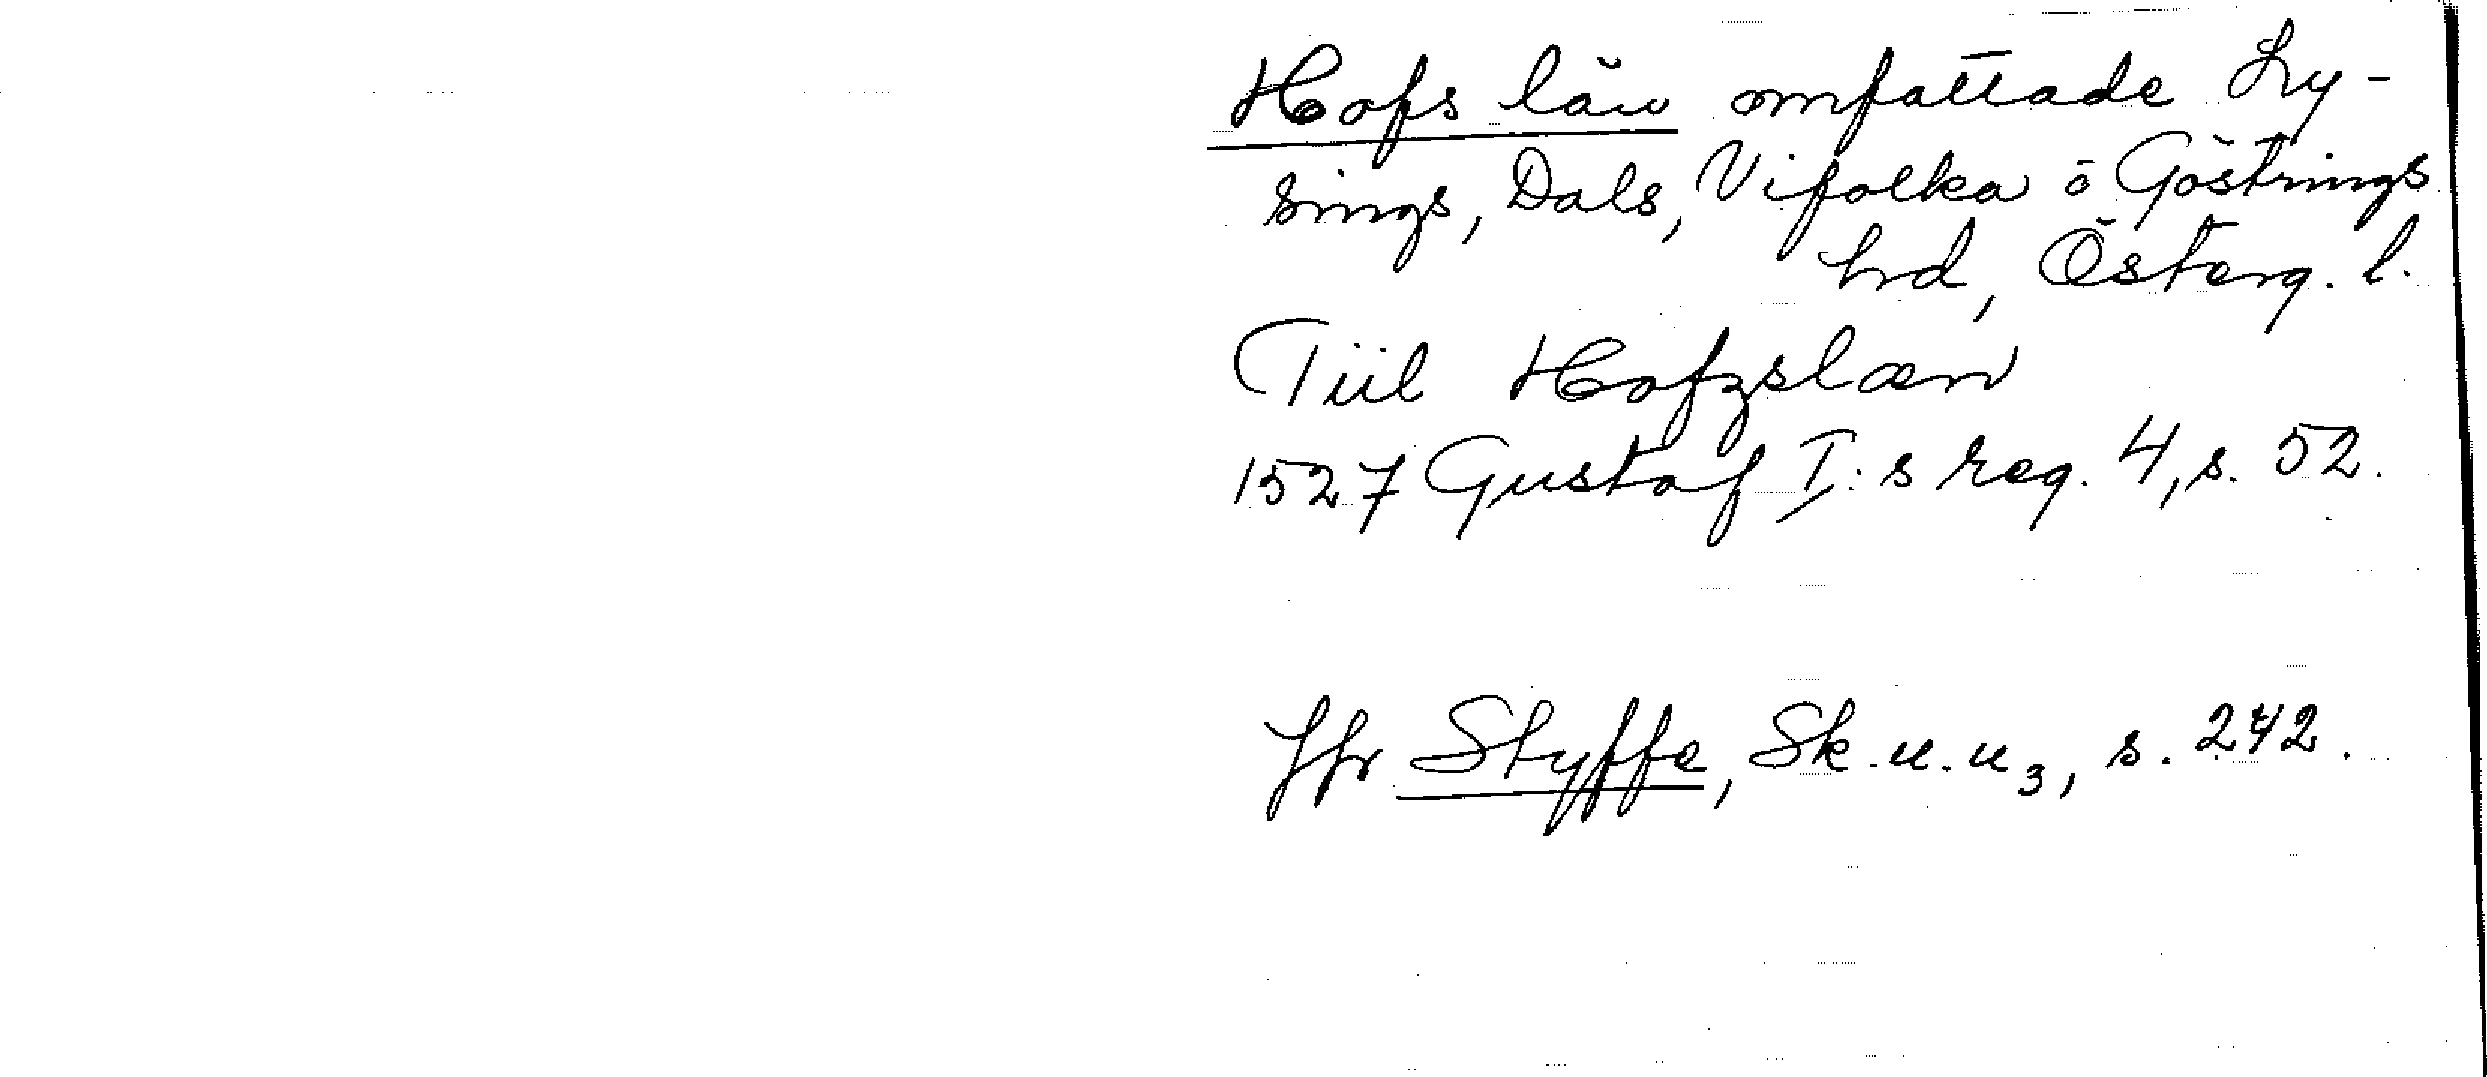 Hofs län omfattade Ly-
sings, Dals, Vifolka o Göstrings
hrd, Österg. l.
Tiil Hofzslæn
1527 Gustaf I:s reg. 4, s. 52.
Jfr Styffe, Sk. u. u 3, s. 242.